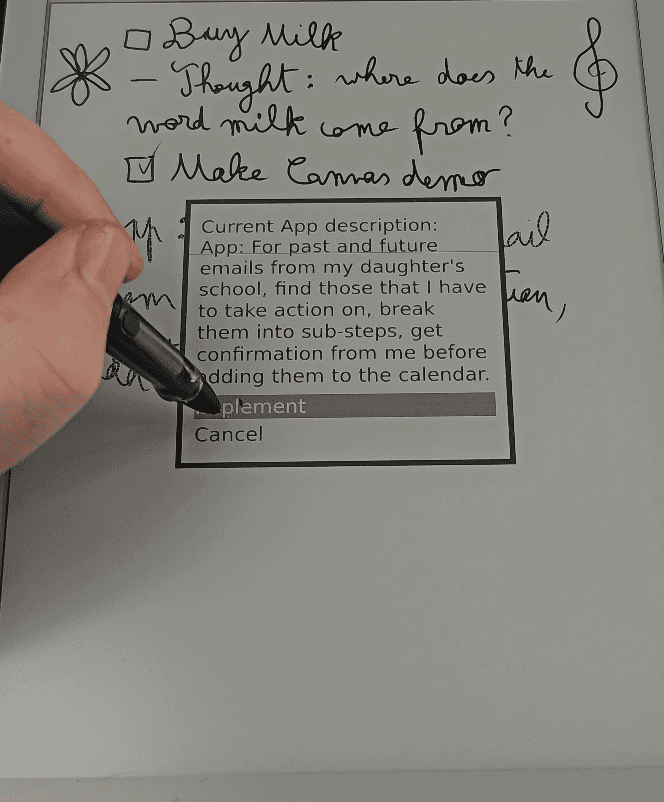 Buy Milk
- Thought: where does the
word milk come from?
Make Canvas demo
Current App description:
App: For past and future
emails from my daughter's
school, find those that I have
to take action on, break
them into sub-steps, get
confirmation from me before
adding them to the calendar.
Cancel